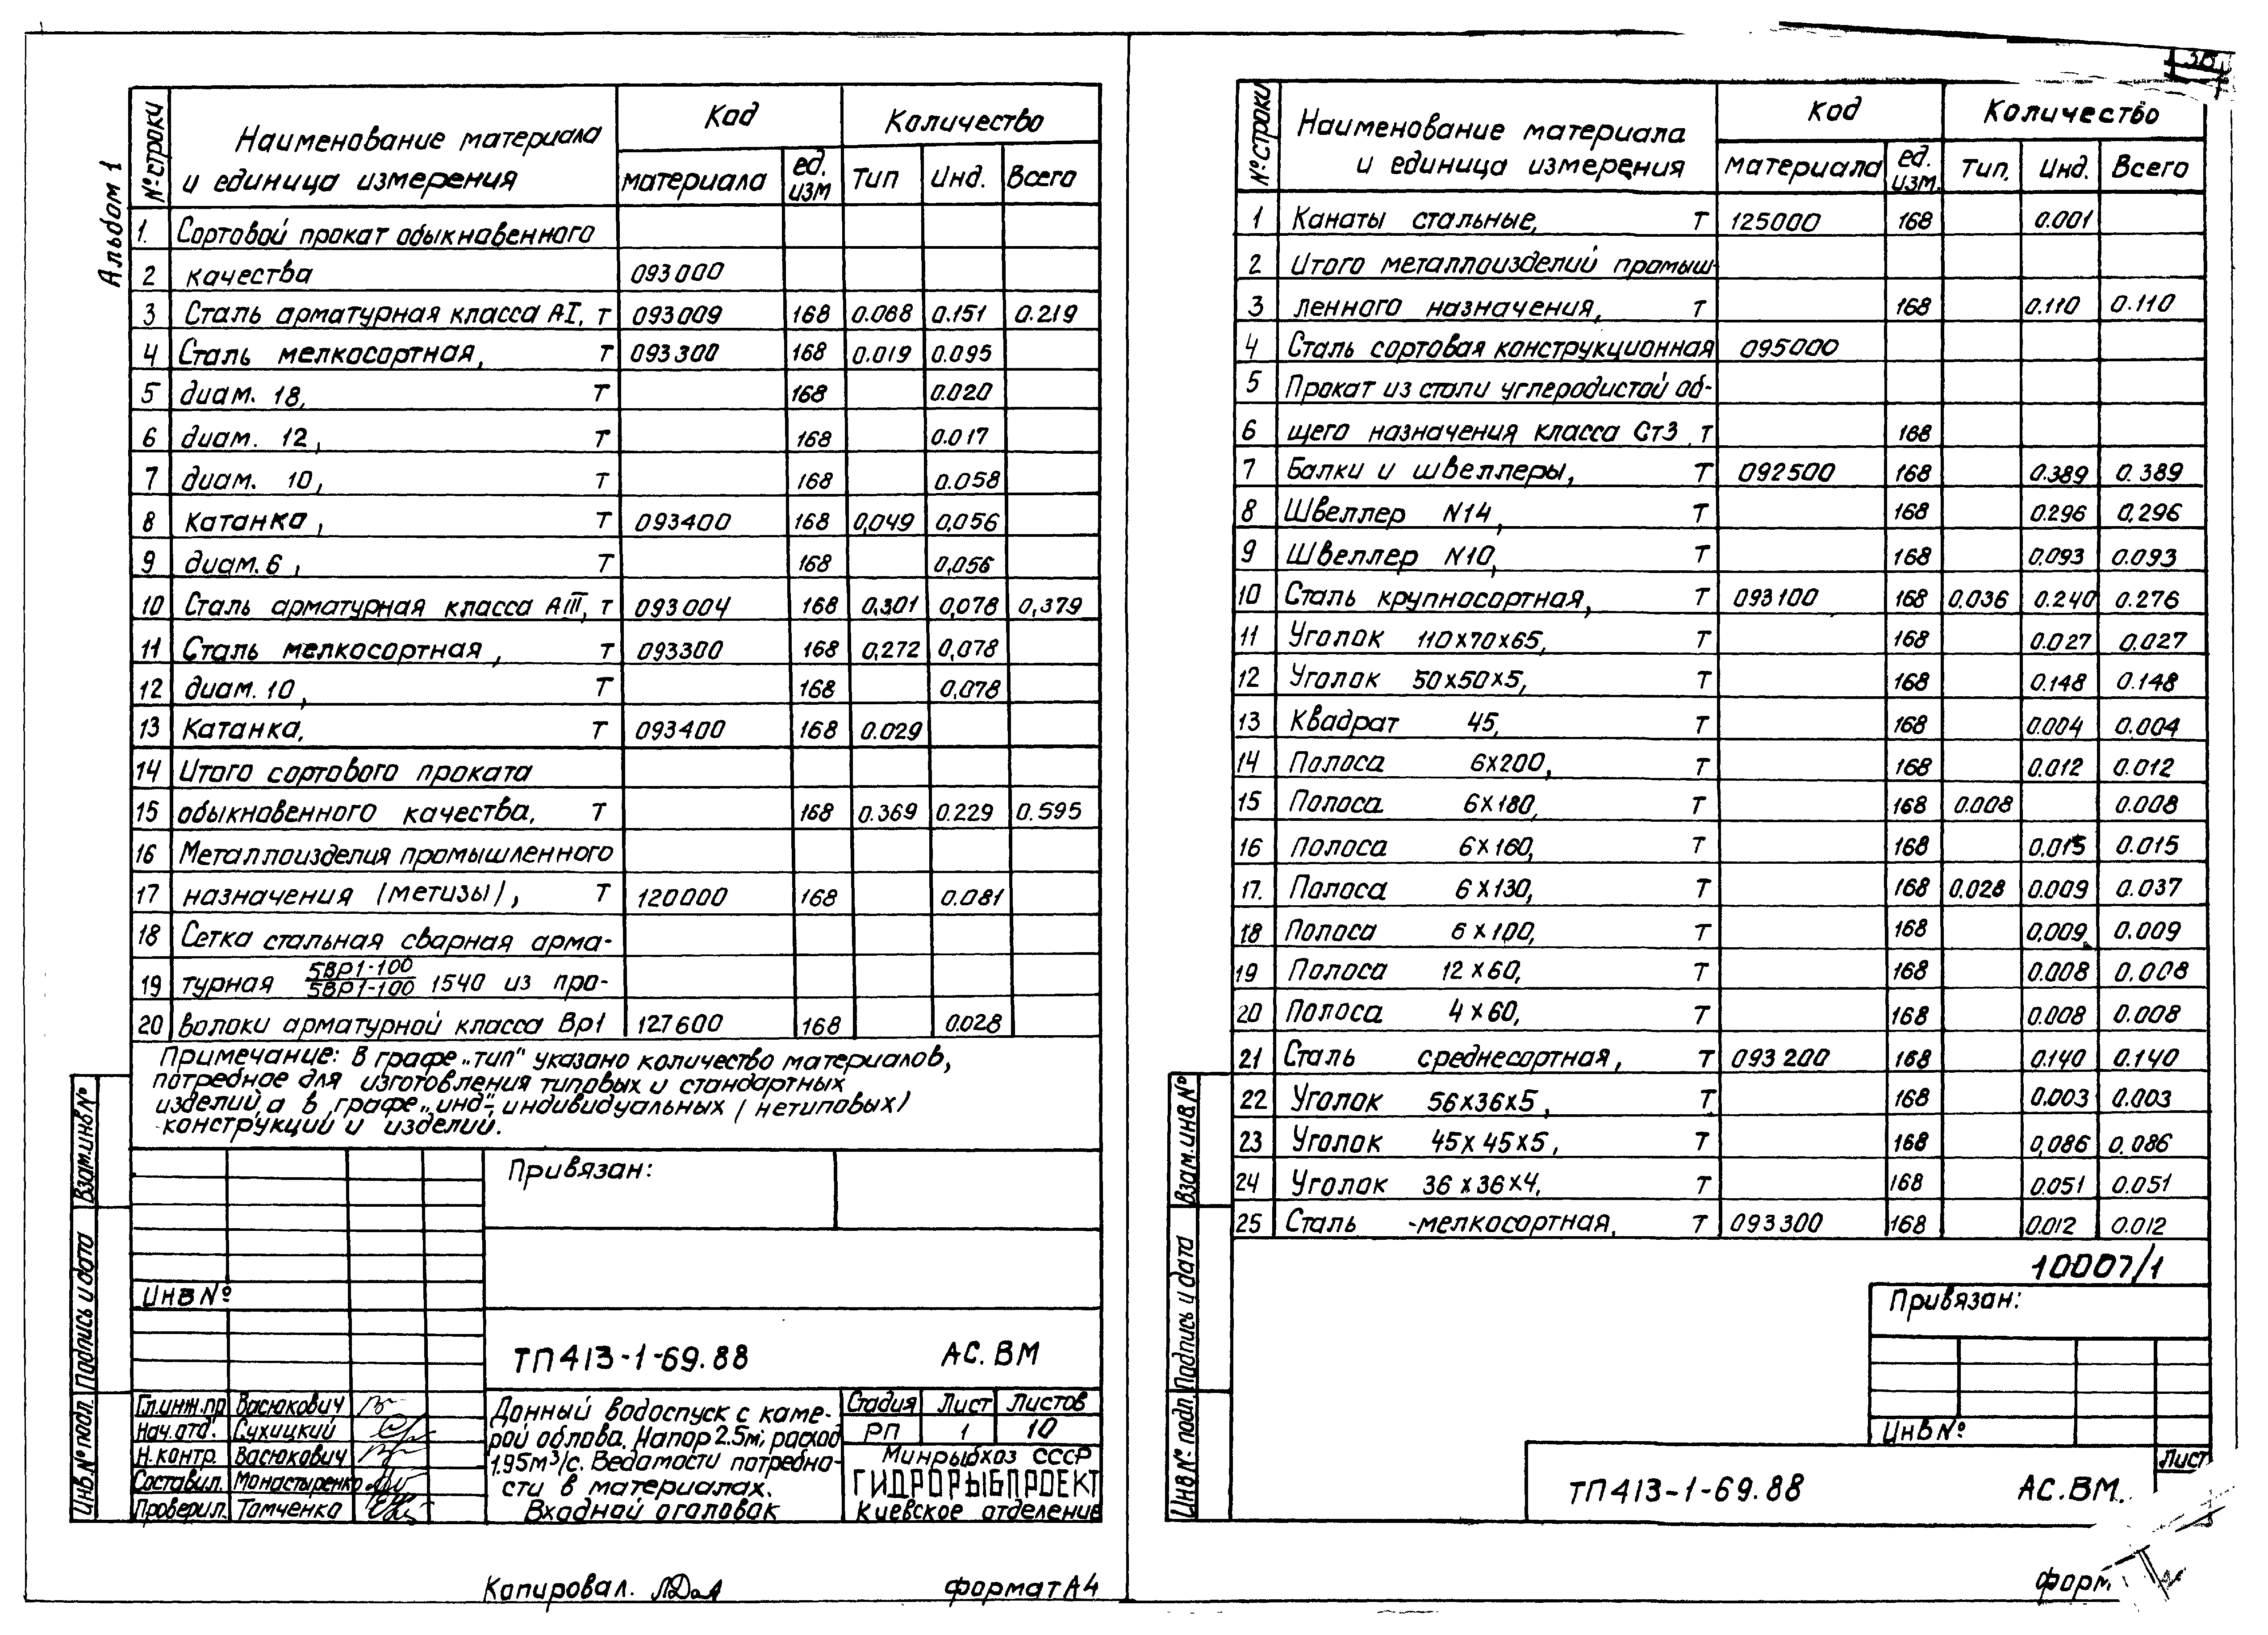 Альбом 1
№ строки Наименование материала и единица измерения Код Количество
материала ед. изм Тип Инд. Всего
1. Сортовой прокат обыкновенного
2 качества 093000
3 Сталь арматурная класса АI, т 093009 168 0.068 0.151 0.219
4 Сталь мелкосортная, т 093300 168 0.019 0.095
5 диам. 18, т 168 0.020
6 диам. 12, т 168 0.017
7 диам. 10, т 168 0.058
8 Катанка, т 093400 168 0,049 0,056
9 диам. 6, т 168 0,056
10 Сталь арматурная класса АIII, т 093004 168 0,301 0,078 0,379
11 Сталь мелкосортная, т 093300 168 0,272 0,078
12 диам. 10, т 168 0,078
13 Катанка, т 093400 168 0.029
14 Итого сортового проката
15 обыкновенного качества, т 168 0.369 0.229 0.595
16 Металлоизделия промышленного
17 назначения (метизы), т 120000 168 0.081
18 Сетка стальная сварная арма-
19 турная 5ВР1-100/5ВР1-100 1540 из про-
20 волоки арматурной класса Вр1 127600 168 0.028
Примечание: В графе „тип" указано количество материалов,
потребное для изготовления типовых и стандартных
изделий, а в графе „инд"- индивидуальных (нетиповых)
конструкций и изделий.
Привязан:
Инв №
ТП 413-1-69.88 АС. ВМ
Гл.инж.пр Васюкович
Нач.отд. Сухицкий
Н.контр. Васюкович
Составил. Монастыренко
Проверил. Томченко
Донный водоспуск с каме-
рой облова. Напор 2.5м; расход
1.95м³/с. Ведомости потребно-
сти в материалах.
Входной оголовок
Стадия Лист Листов
РП 1 10
Минрыбхоз СССР
ГИДРОРЫБПРОЕКТ
Киевское отделение
Взам.инв№
Подпись и дата
Инв.№ подл.
Копировал.
формат А4
№ строки Наименование материала и единица измерения Код Количество
материала ед. изм. Тип. Инд. Всего
1 Канаты стальные, т 125000 168 0.001
2 Итого металлоизделий промыш-
3 ленного назначения, т 168 0.110 0.110
4 Сталь сортовая конструкционная 095000
5 Прокат из стали углеродистой об-
6 щего назначения класса Ст3, т 168
7 Балки и швеллеры, т 092500 168 0.389 0.389
8 Швеллер N14, т 168 0.296 0,296
9 Швеллер N10, т 168 0.093 0.093
10 Сталь крупносортная, т 093100 168 0.036 0.240 0.276
11 Уголок 110х70х65, т 168 0.027 0.027
12 Уголок 50х50х5, т 168 0.148 0.148
13 Квадрат 45, т 168 0.004 0.004
14 Полоса 6х200, т 168 0.012 0.012
15 Полоса 6х180, т 168 0.008 0.008
16 Полоса 6х160, т 168 0.015 0.015
17. Полоса 6х130, т 168 0.028 0.009 0.037
18 Полоса 6х100, т 168 0,009 0.009
19 Полоса 12х60, т 168 0.008 0.008
20 Полоса 4х60, т 168 0.008 0.008
21 Сталь среднесортная, т 093200 168 0.140 0.140
22 Уголок 56х36х5, т 168 0.003 0.003
23 Уголок 45х45х5, т 168 0,086 0.086
24 Уголок 36х36х4, т 168 0.051 0.051
25 Сталь -мелкосортная, т 093300 168 0.012 0.012
10007/1
Привязан:
Инв №
Лист
ТП 413-1-69.88 АС.ВМ.
Взам.инв№
Подпись и дата
Инв № подл.
форм